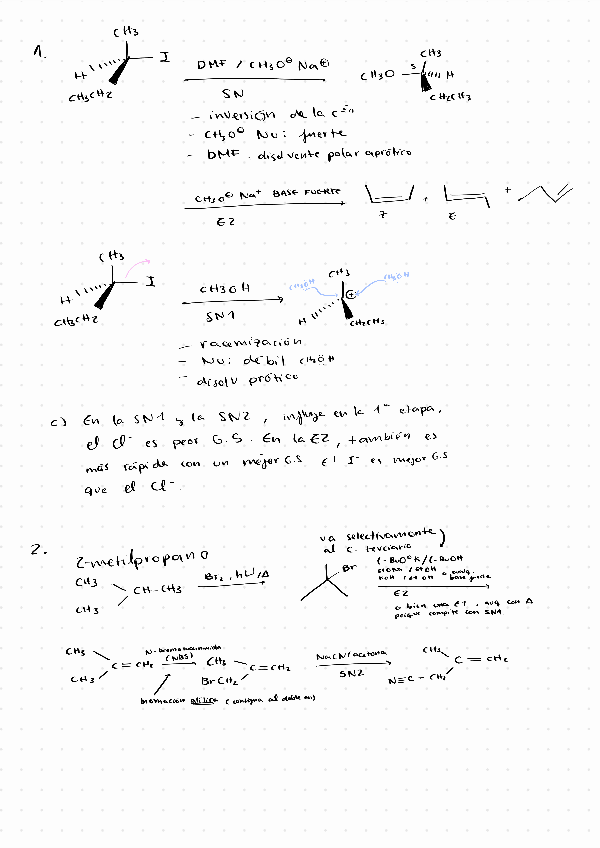 1.
CH3
I
H
CH3CH2
DMF / CH3O⊖ Na⊕
SN
CH3
CH3O
S
H
CH2CH3
- inversión de la cón
- CH3O⊖ Nu: fuerte
- DMF. disolvente polar aprótico
CH3O⊖ Na+ BASE FUERTE
E2
+
+
Z
E
CH3
I
H
CH3CH2
CH3OH
SN1
CH3
CH3OH
CH3OH
⊕
H
CH2CH3
- racemización
- Nu: débil CH3OH
- disolv prótico
c) En la SN1 y la SN2, influye en la 1ª etapa,
el Cl- es peor G.S. En la E2, también es
más rápida con un mejor G.S El I- es mejor G.S
que el Cl-.
2.
2-metilpropano
CH3
CH-CH3
CH3
Br2, hν/Δ
va selectivamente
al C. terciario
Br
t-BuO⊖K/t-BuOH
E2
o bien una E1, aunq con Δ
porque compite con SN1
CH3
C=CH2
CH3
N-bromosuccinimida
(NBS)
CH3
C=CH2
BrCH2
NaCN/acetona
SN2
CH3
C=CH2
N≡C-CH2
bromación alílica (contigua al doble en)